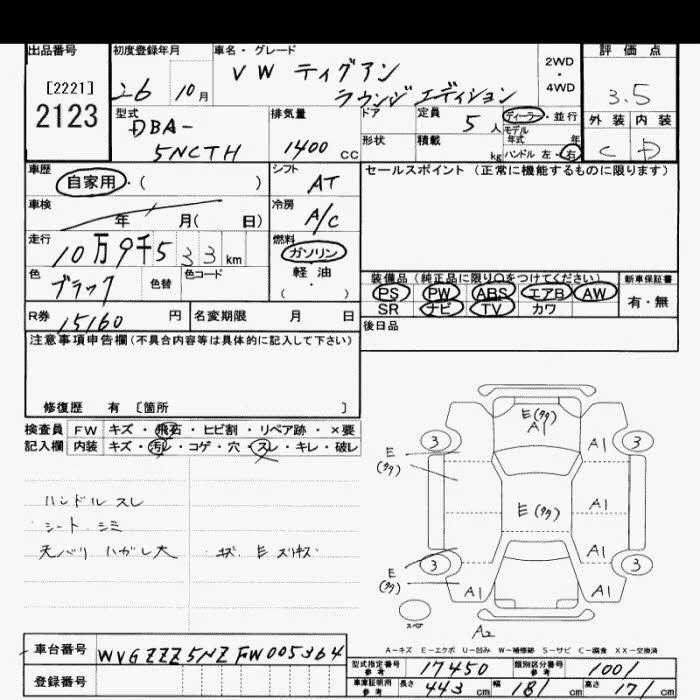 出品番号 初度登録年月 車名・グレード 2WD・4WD 評価点
[2221]
2123
26 10月
VW ティグアン
ラウンジ エディション
3.5
外装 内装
C D
型式 排気量 ドア 定員 ディーラー・並行
DBA-
5NCTH
1400 cc
5人
モデル年式 年
形状 積載 kg ハンドル 左・右
車歴 シフト セールスポイント(正常に機能するものに限ります)
自家用・( )
AT
車検 冷房
年 月( 日)
A/C
走行 燃料
10万9千533km
ガソリン
軽油
(・)
色 色替 色コード
ブラック
装備品(純正品に限り○をつけてください) 新車保証書
PS PW ABS エアB AW 有・無
SR ナビ TV カワ
R券 15160円 名変期限 月 日
後日品
注意事項申告欄(不具合内容等は具体的に記入して下さい)
修復歴 有 [箇所 ]
検査員 FW キズ・飛石・ヒビ割・リペア跡・×要
記入欄 内装 キズ・汚レ・コゲ・穴・スレ・キレ・破レ
ハンドル スレ
シート シミ
天バリ ハガレ大
E(タタ)
A1
3 3
A1
E
(タタ)
E(タタ)
A1
A1
3 3
E
(タタ)
A1 A1
スペア
A2
A-キズ E-エクボ U-凹み W-補修跡 S-サビ C-腐食 XX-交換済
車台番号 WVGZZZ5NZFW005364
登録番号
型式指定番号 参考 17450 類別区分番号 参考 1001
車庫証明用 参考 長さ 443cm 幅 181cm 高さ 171cm